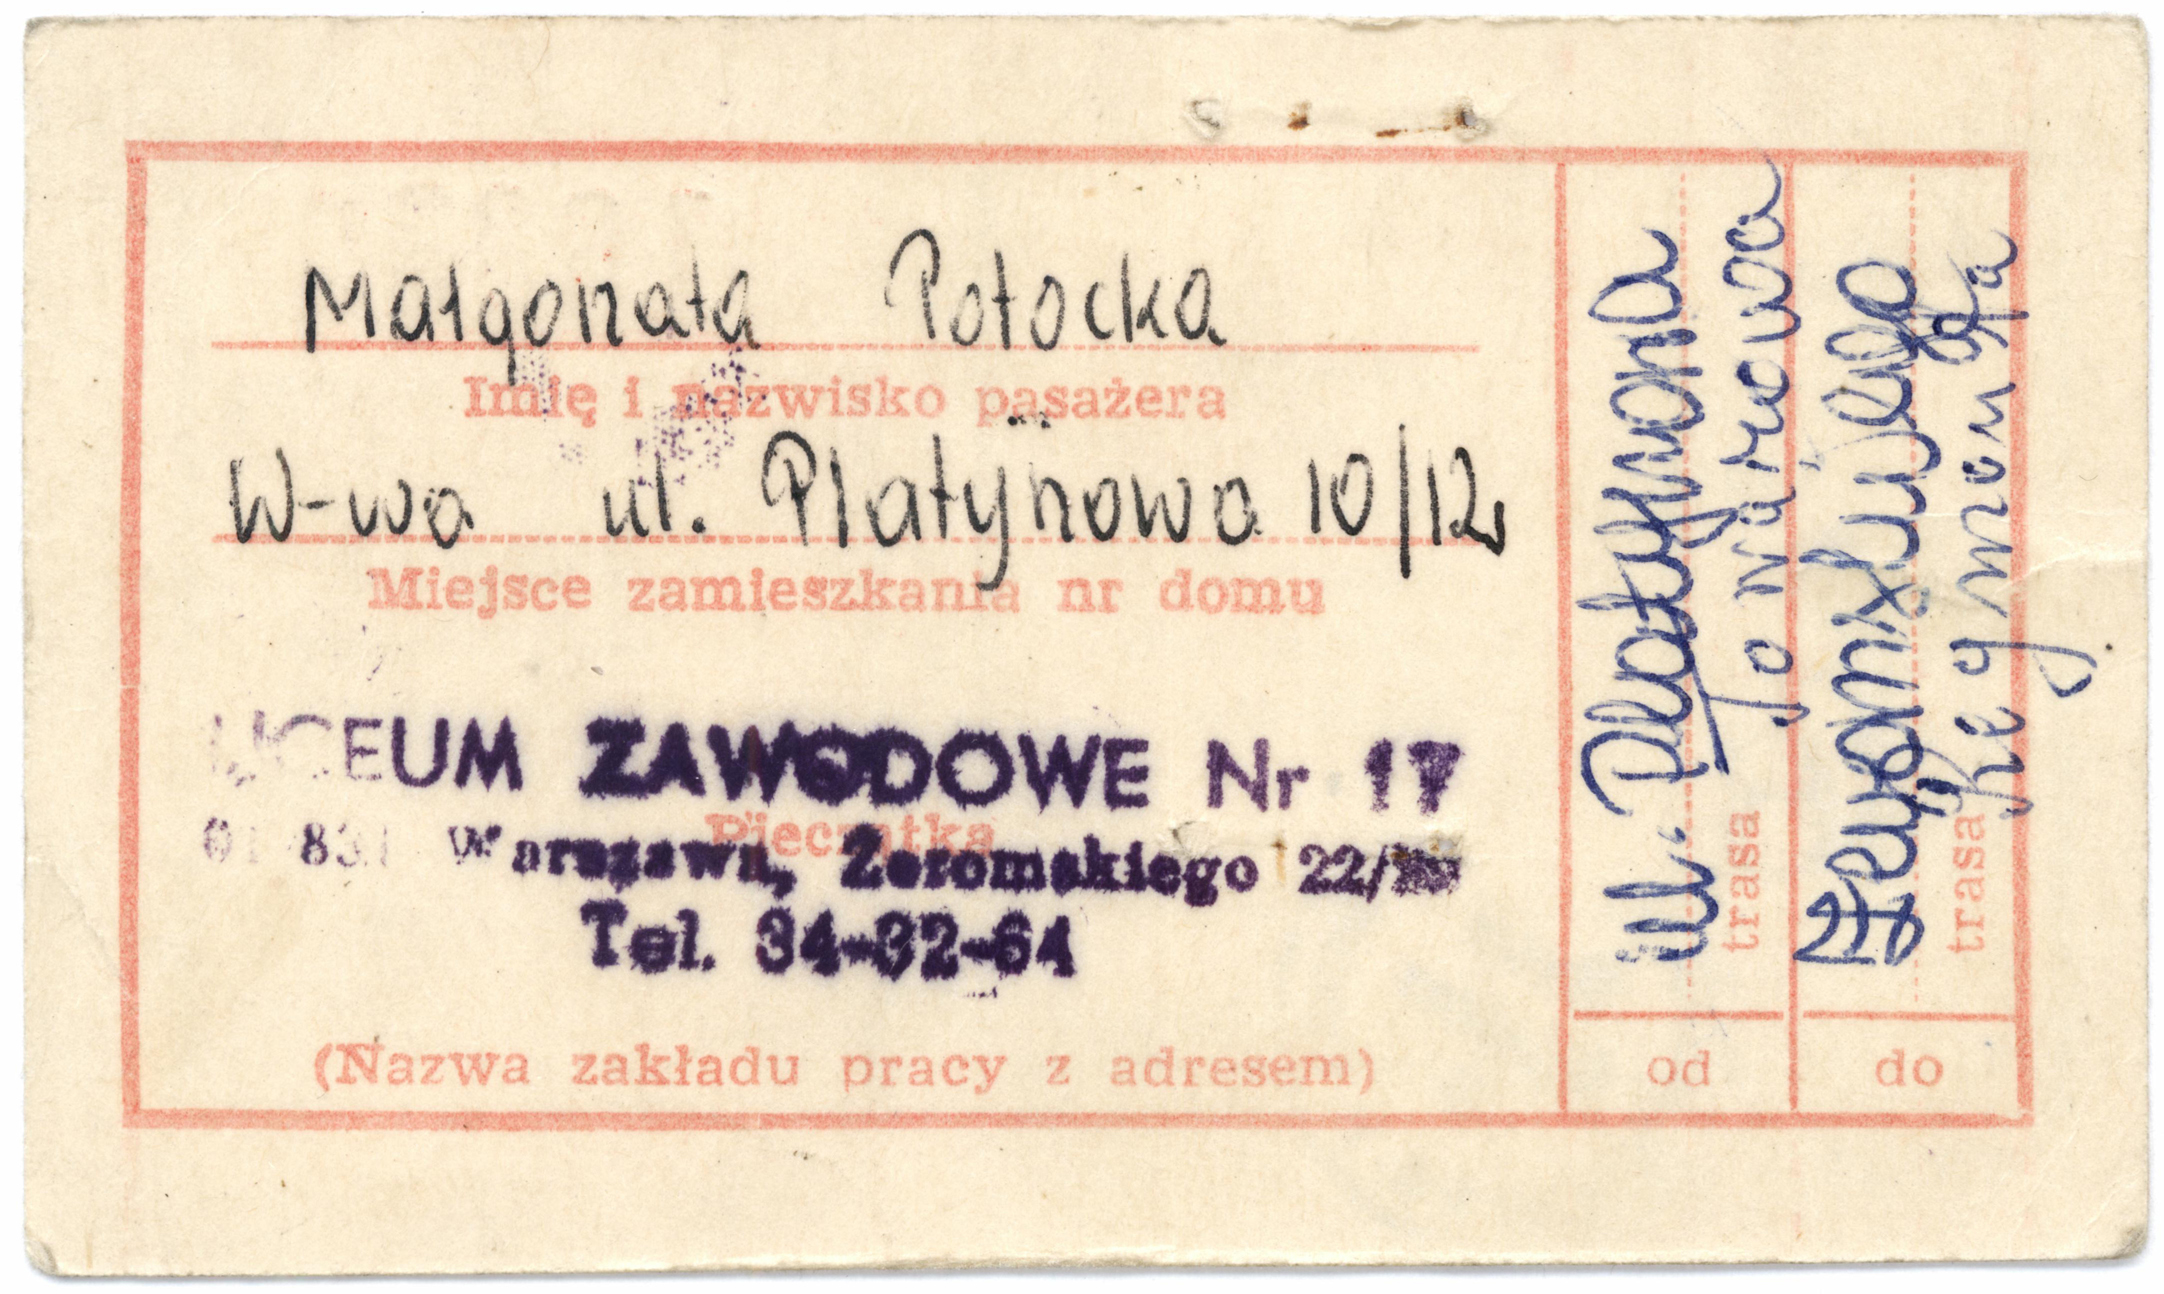 Małgorzata Potocka
Imię i nazwisko pasażera
W-wa ul. Platynowa 10/12
Miejsce zamieszkania nr domu
LICEUM ZAWODOWE Nr 17
Pieczątka
01 831 Warszawa, Żeromskiego 22/
Tel. 34-32-64
(Nazwa zakładu pracy z adresem)
ul. Platynowa
Towarowa
trasa
od
Żeromskiego
trasa
do